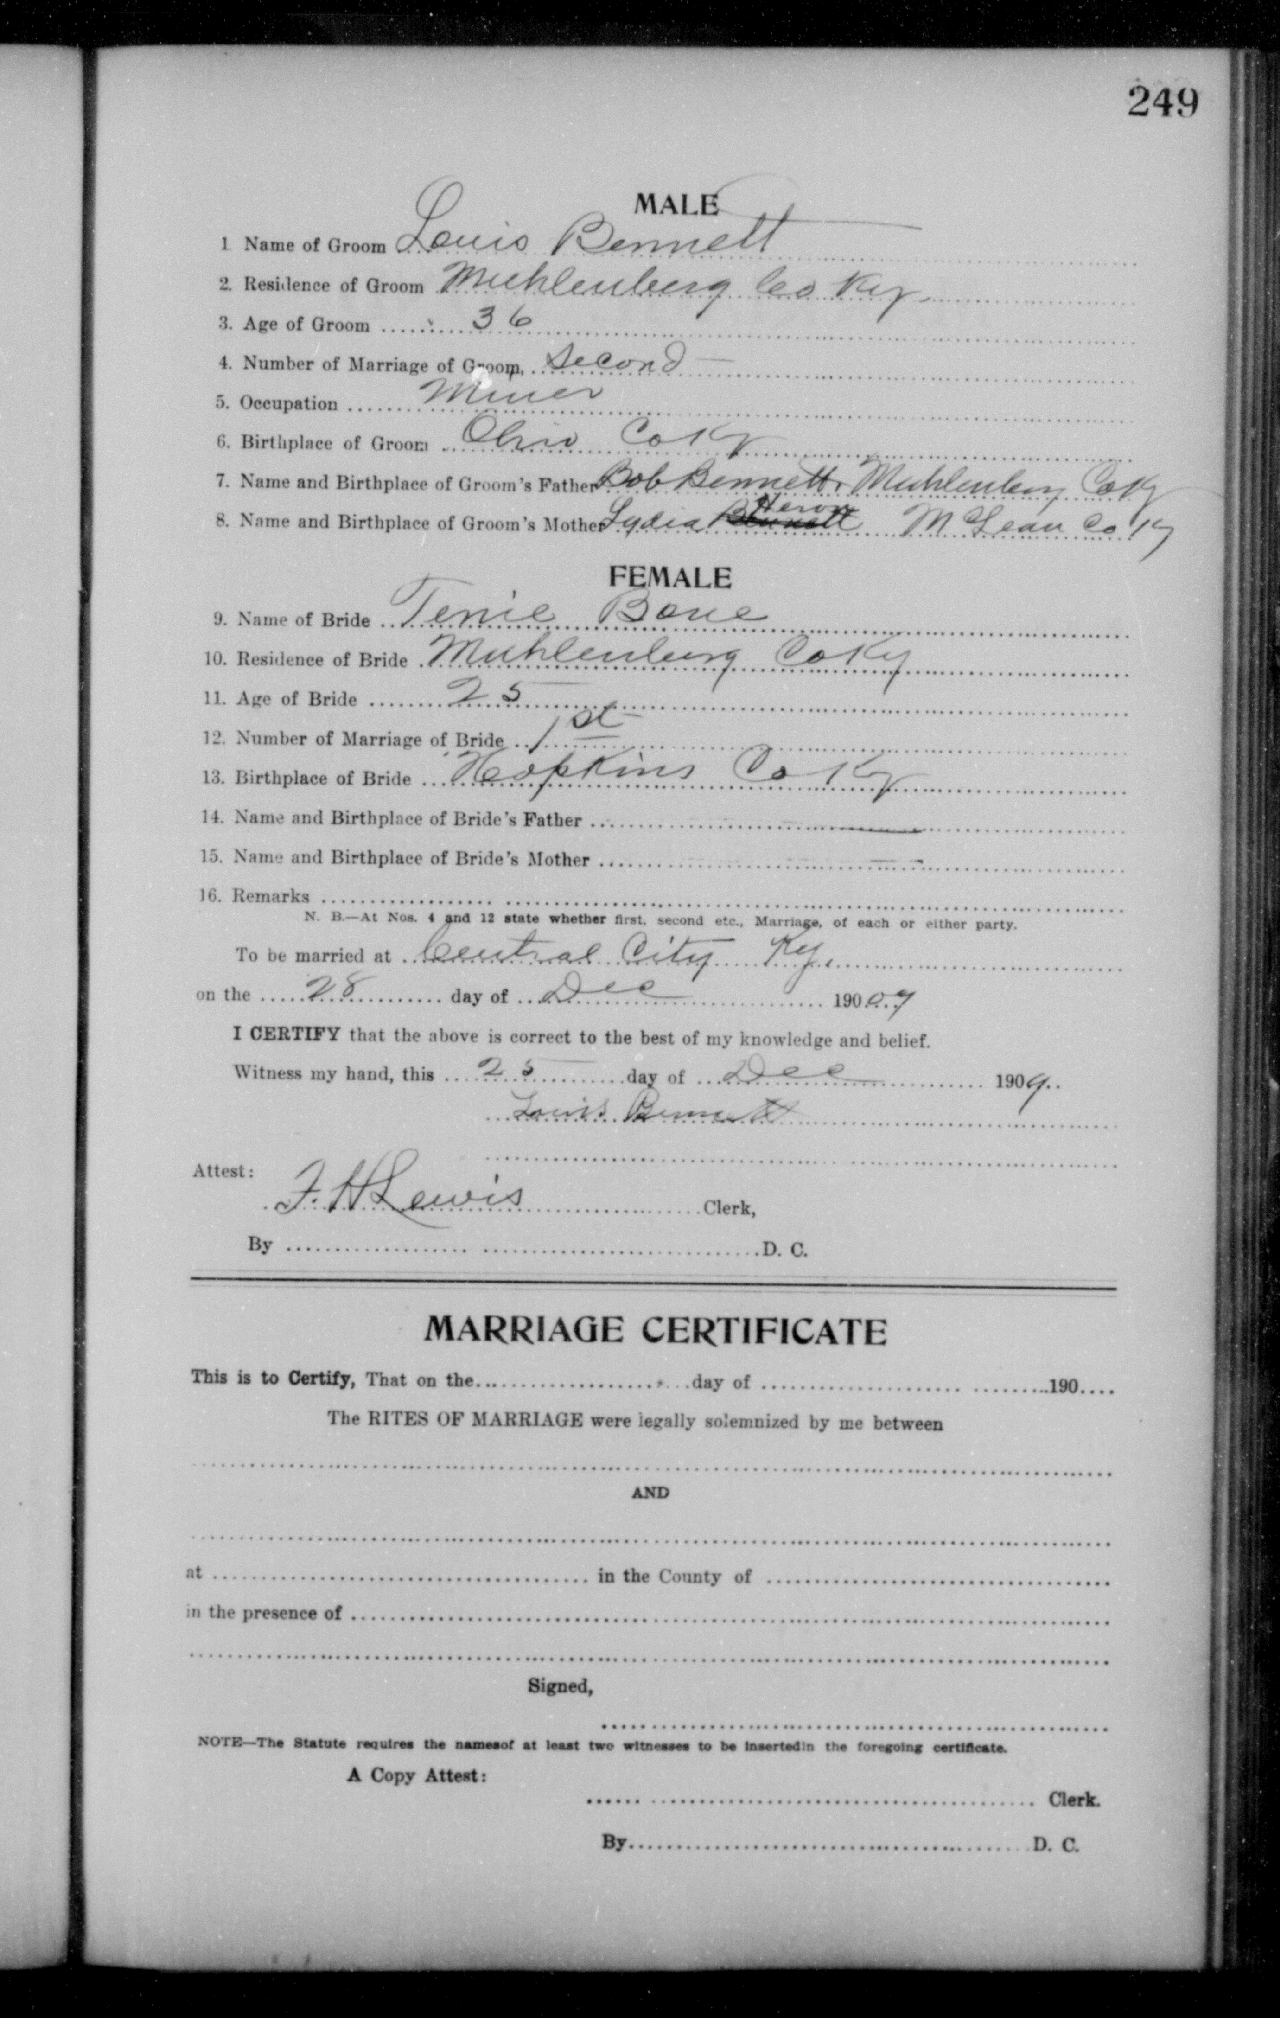 249
MALE
1 Name of Groom Louis Bennett
2. Residence of Groom Muhlenberg Co Ky.
3. Age of Groom 36
4. Number of Marriage of Groom, Second
5. Occupation Miner
6. Birthplace of Groom Ohio Co Ky
7. Name and Birthplace of Groom's Father Bob Bennett, Muhlenberg Co Ky
8. Name and Birthplace of Groom's Mother Lydia Bennett McLean Co Ky
FEMALE
9. Name of Bride Tenie
10. Residence of Bride Muhlenberg Co Ky
11. Age of Bride 25
12. Number of Marriage of Bride 1st
13. Birthplace of Bride Hopkins Co Ky
14. Name and Birthplace of Bride's Father
15. Name and Birthplace of Bride's Mother
16. Remarks
N. B.—At Nos. 4 and 12 state whether first, second etc., Marriage, of each or either party.
To be married at Central City Ky.
on the 28 day of Dec 190 09
I CERTIFY that the above is correct to the best of my knowledge and belief.
Witness my hand, this 25 day of Dec 1909
Louis Bennett
Attest:
F. H Lewis Clerk,
By D. C.
MARRIAGE CERTIFICATE
This is to Certify, That on the day of 190
The RITES OF MARRIAGE were legally solemnized by me between
AND
at in the County of
in the presence of
Signed,
NOTE—The Statute requires the namesof at least two witnesses to be insertedin the foregoing certificate.
A Copy Attest:
Clerk.
By D. C.